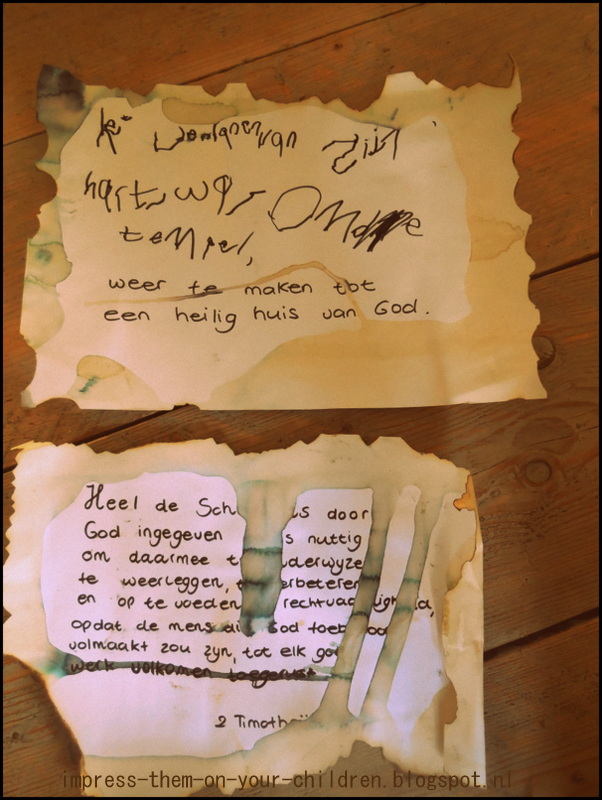 van zijn
hart was Om de
tempel,
weer te maken tot
een heilig huis van God.
Heel de Sch is door
God ingegeven s nuttig
om daarmee t nderwyze
te weerleggen, erbeteren
en op te voeden rechtvaa igh d,
opdat de mens di God toeb oo
volmaakt zou zyn, tot elk go
werk volkomen toegerust
2 Timothe
impress-them-on-your-children.blogspot.nl